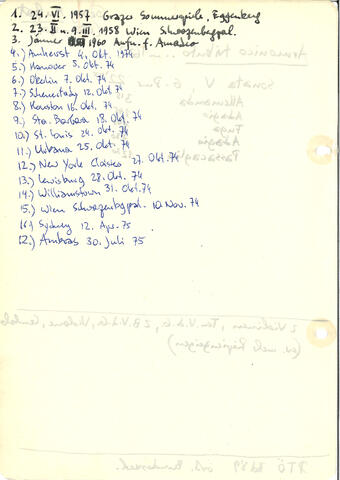 1. 24. VI. 1957 Grazer Sommerspiele, Eggenberg
2. 23. II u. 9. III. 1958 Wien Schwarzenbgpal.
3. Jänner 1960 Aufn. f. Amadeo
4.) Amherst 4. Okt. 1974
5.) Hanover 5. Okt. 74
6.) Oberlin 7. Okt. 74
7.) Schenectady 12. Okt 74
8.) Houston 16. Okt. 74
9.) Sta. Barbara 18. Okt. 74
10.) St. Louis 24. Okt. 74
11.) Urbana 25. Okt. 74
12.) New York Cloisters 27. Okt. 74
13.) Lewisburg 28. Okt. 74
14.) Williamstown 31. Okt. 74
15.) Wien Schwarzenbgpal. 10. Nov. 74
16) Sydney 12. Apr. 75
17.) Ambras 30. Juli 75